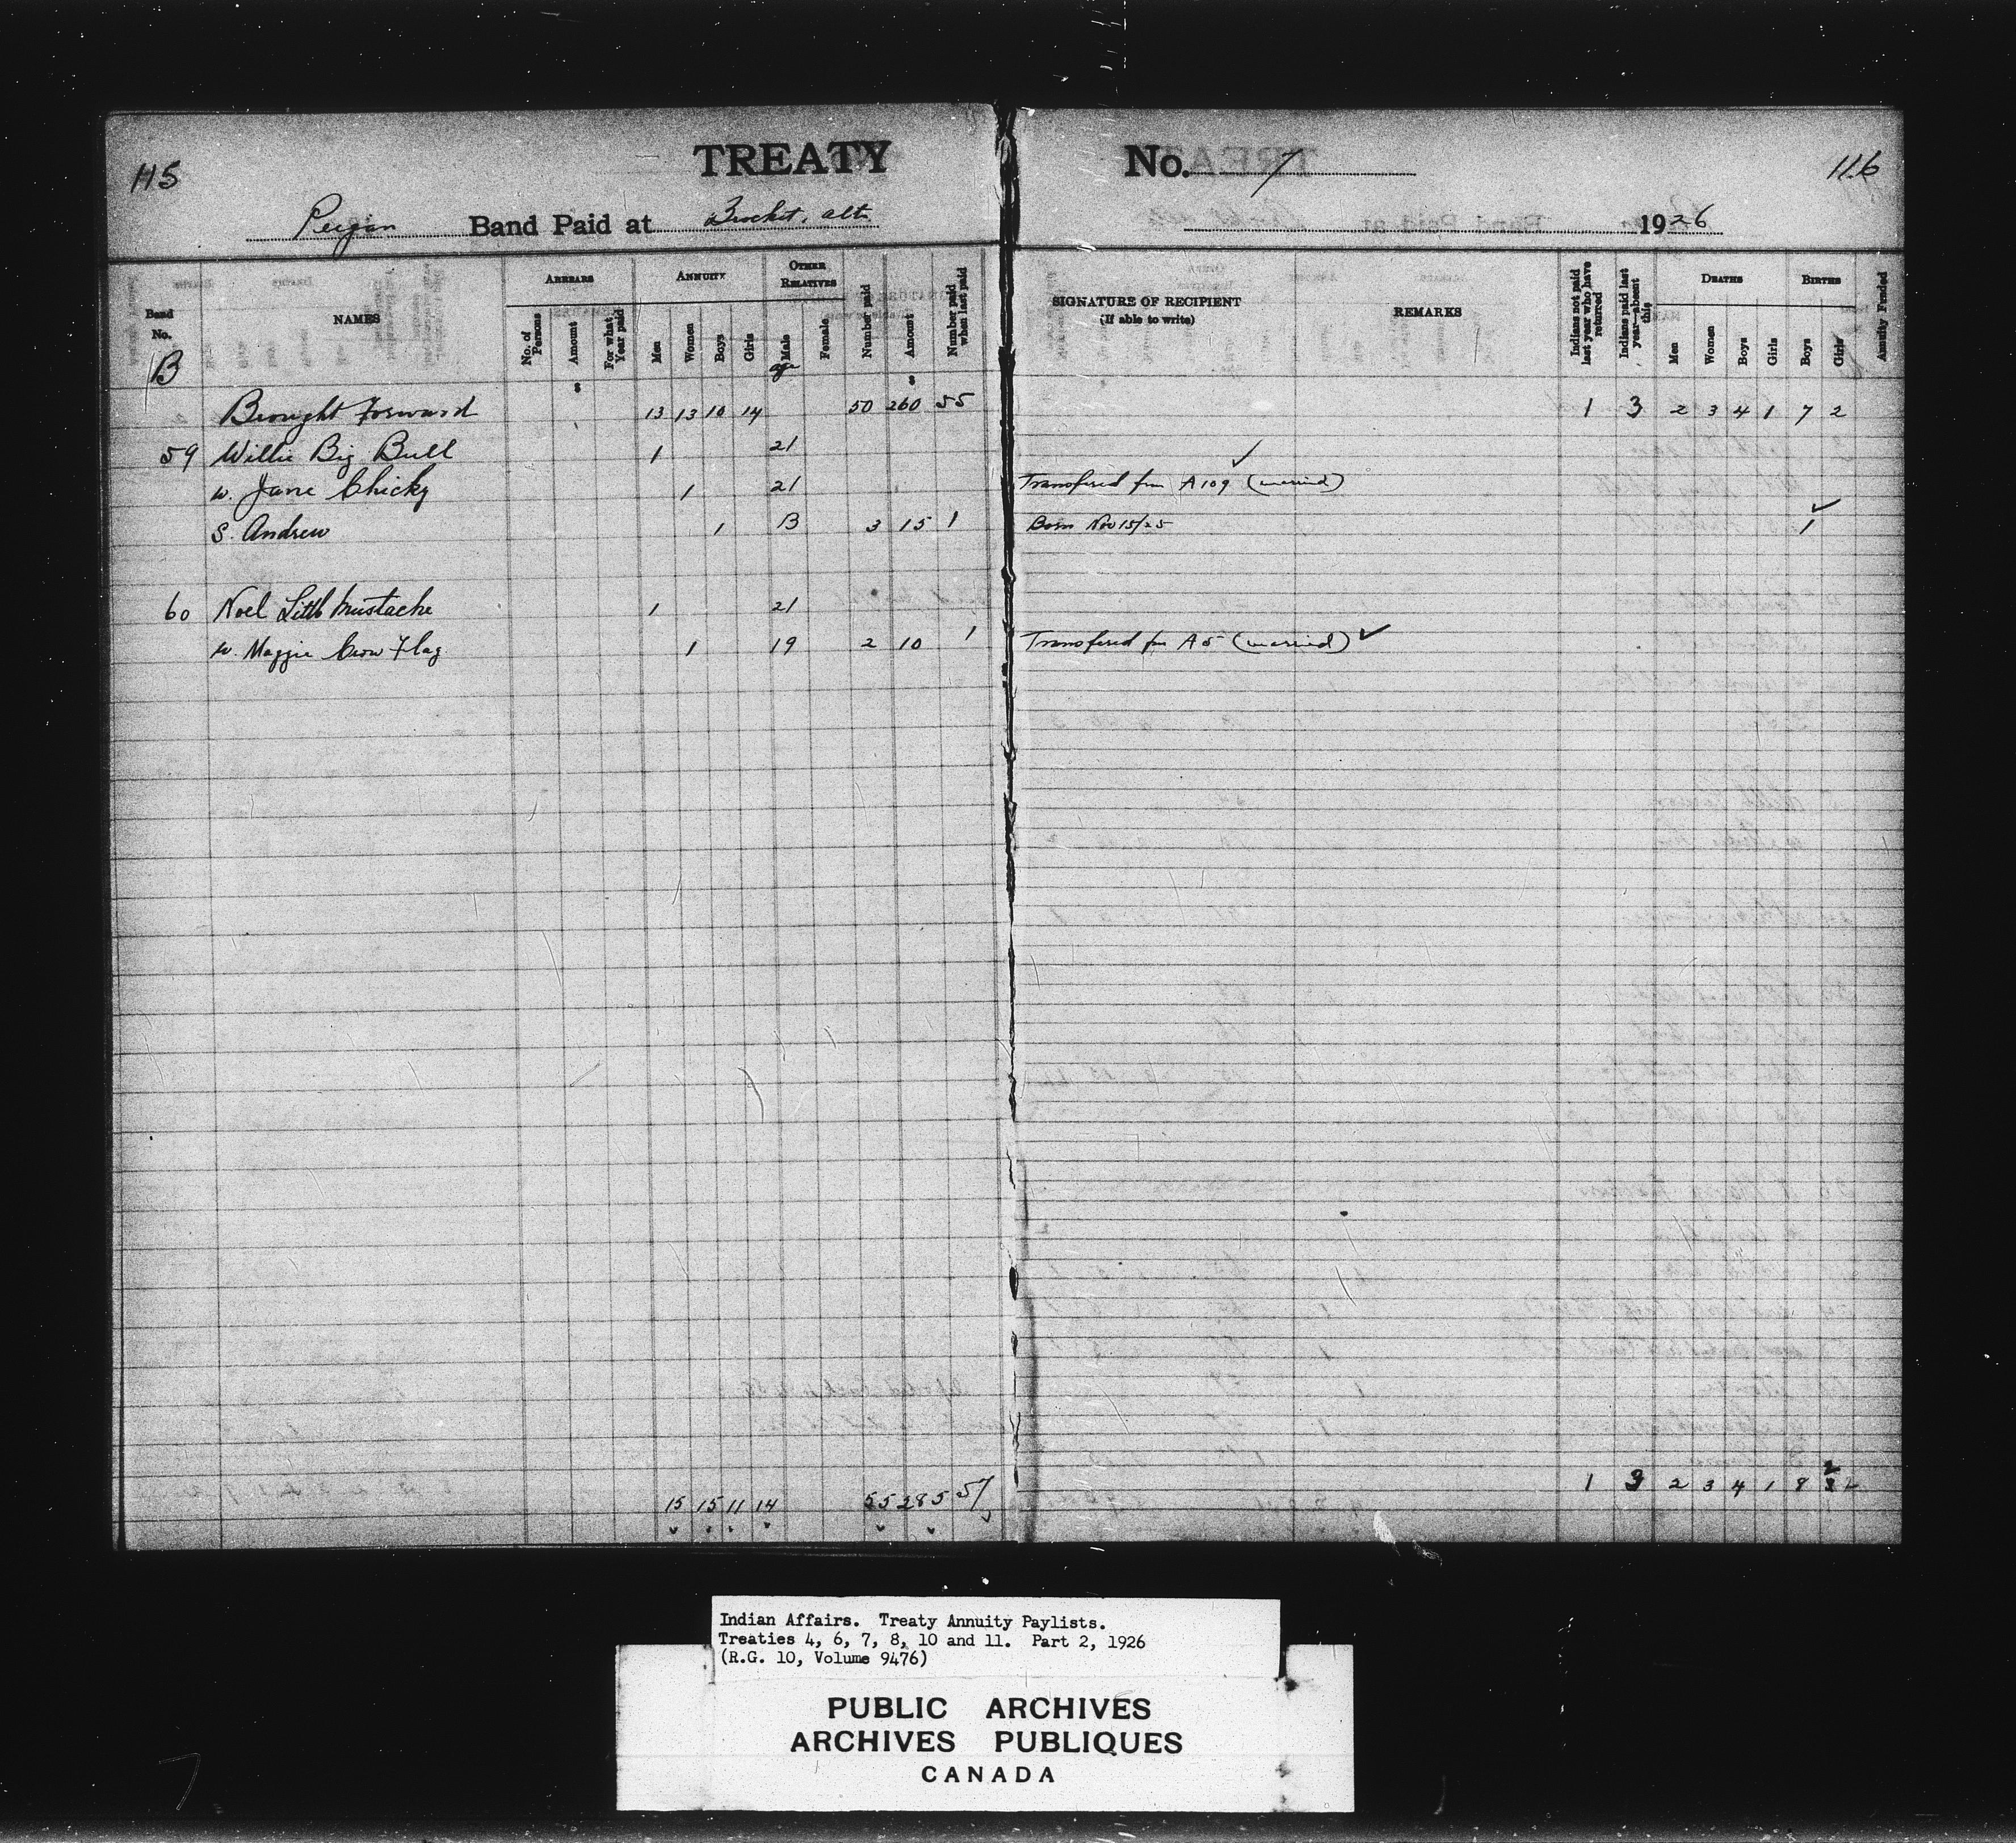 115
TREATY No. 7
116
Peigan Band Paid at Brocket, Alta. 1926
Band No. NAMES ARREARS ANNUITY OTHER RELATIVES Number paid Amount Number paid when last paid SIGNATURE OF RECIPIENT REMARKS Indians not paid last year who have returned Indians paid last year—absent this DEATHS BIRTHS Annuity Funded
(If able to write)
No. of Persons Amount For what Year paid Men Women Boys Girls Male Female Men Women Boys Girls Boys Girls
B age
$ $
Brought Forward 13 13 10 14 50 260 55 1 3 2 3 4 1 7 2
59 Willie Big Bull 1 21
w. Jane Chicky 1 21 Transfered from A 109 (married) ✓
S. Andrew 1 B 3 15 1 Born Nov 15/25 1 ✓
60 Noel Little Mustache 1 21
w. Maggie Crow Flag 1 19 2 10 1 Transfered from A 5 (married) ✓
15 15 11 14 55 285 57 1 3 2 3 4 1 8 2
Indian Affairs. Treaty Annuity Paylists.
Treaties 4, 6, 7, 8, 10 and 11. Part 2, 1926
(R.G. 10, Volume 9476)
PUBLIC ARCHIVES
ARCHIVES PUBLIQUES
CANADA